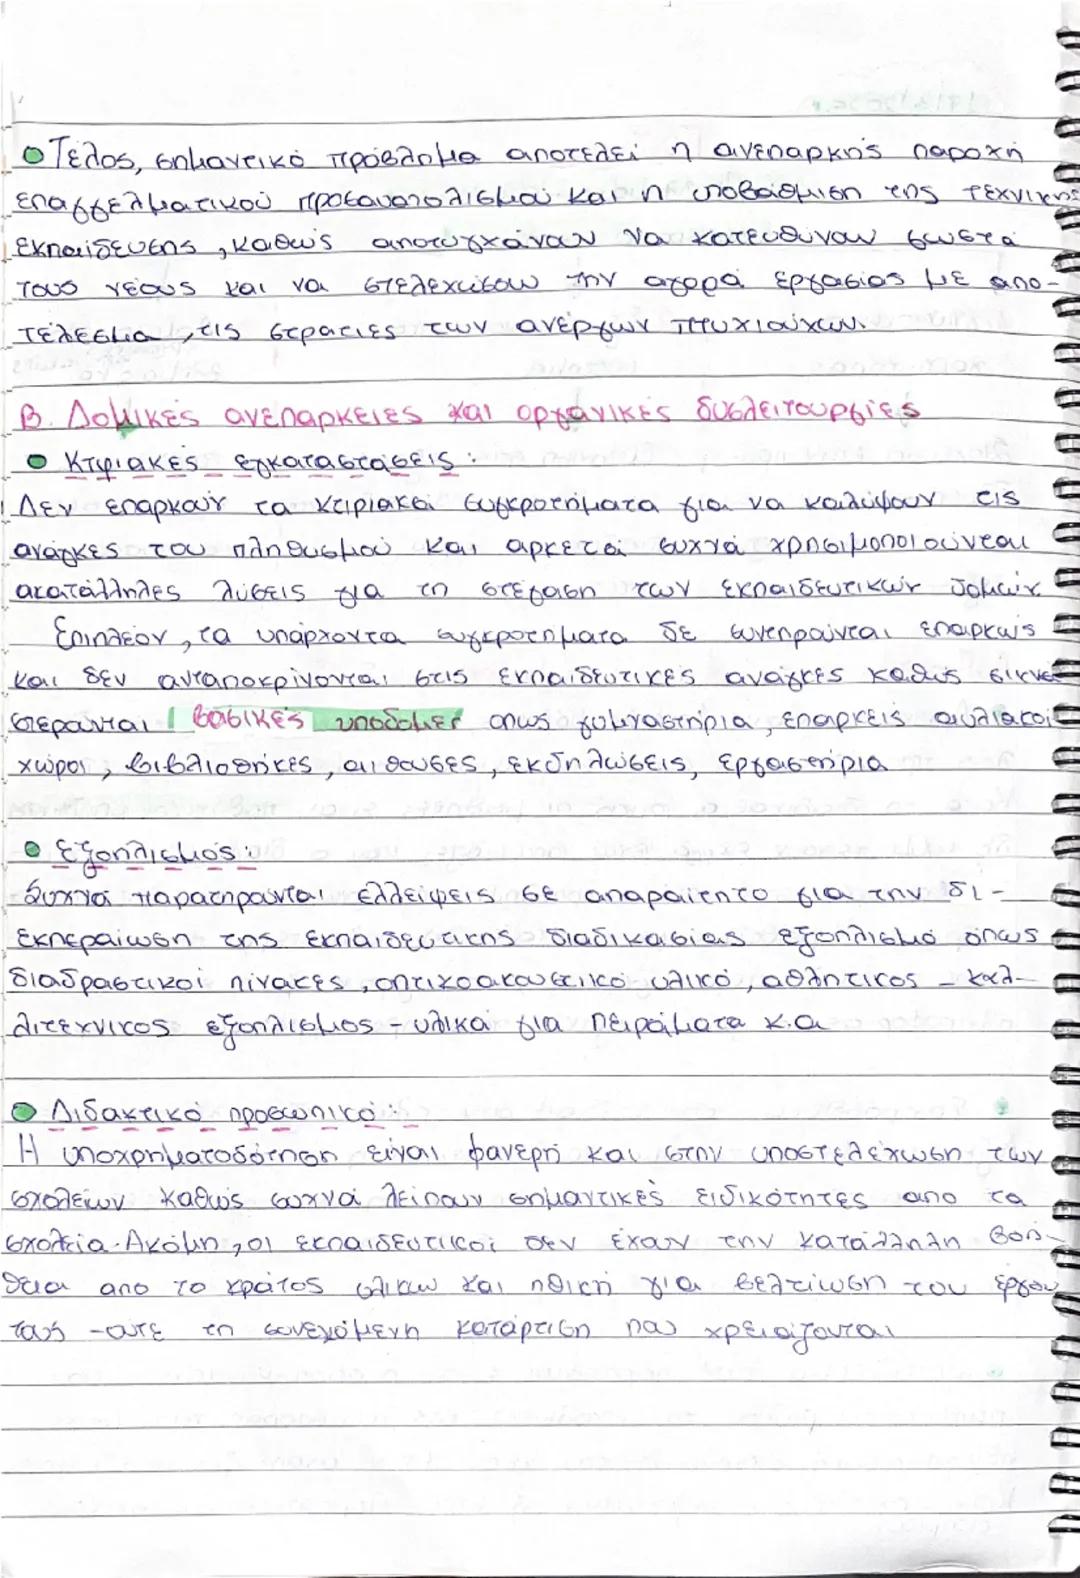 Τέλος, σημαντικό πρόβλημα αποτελεί η ανεπαρκής παροχή
επαγγελματικού προσανατολισμού και η υποβάθμιση της τεχνικής
εκπαίδευσης, καθώς αποτυγχάνουν να κατευθύνουν σωστά
τους νέους και να στελεχώσουν την αγορά εργασίας με απο-
τέλεσμα, τις στρατιές των ανέργων πτυχιούχων.
Β. Δομικές ανεπάρκειες και οργανικές δυσλειτουργίες
Κτιριακές εγκαταστάσεις:
Δεν επαρκούν τα κτιριακά συγκροτήματα για να καλύψουν τις
ανάγκες του πληθυσμού και αρκετά συχνά χρησιμοποιούνται
ακατάλληλες λύσεις για τη στέγαση των εκπαιδευτικών δομών
Επιπλέον, τα υπάρχοντα συγκροτήματα δε συντηρούνται επαρκώς
και δεν ανταποκρίνονται στις εκπαιδευτικές ανάγκες καθώς
στερούνται βασικές υποδομές οπως γυμναστήρια, επαρκείς αυλιακοί
χώροι, βιβλιοθήκες, αιθουσες, εκδηλώσεις, εργαστήρια
Εξοπλισμός:
Συχνά παρατηρούνται ελλείψεις σε απαραίτητο για την δι-
εκπεραίωση της εκπαιδευτικης διαδικασίας εξοπλισμό όπως
διαδραστικοί πίνακες, οπτικοακουστικό υλικό, αθλητικος - καλ-
λιτεχνικος εξοπλισμος - υλικά για πειράματα κ.α
Διδακτικό προσωπικό:
Η υποχρηματοδότηση είναι φανερή και στην υποστελέχωση των
σχολείων καθώς συχνά λείπουν σημαντικές ειδικότητες απο τα
σχολεία. Ακόμη, οι εκπαιδευτικοί δεν έχουν την κατάλληλη βοή-
θεια απο το κράτος υλικη και ηθική για βελτίωση του έργου
τους - ουτε τη συνεχόμενη κατάρτιση που χρειάζονται